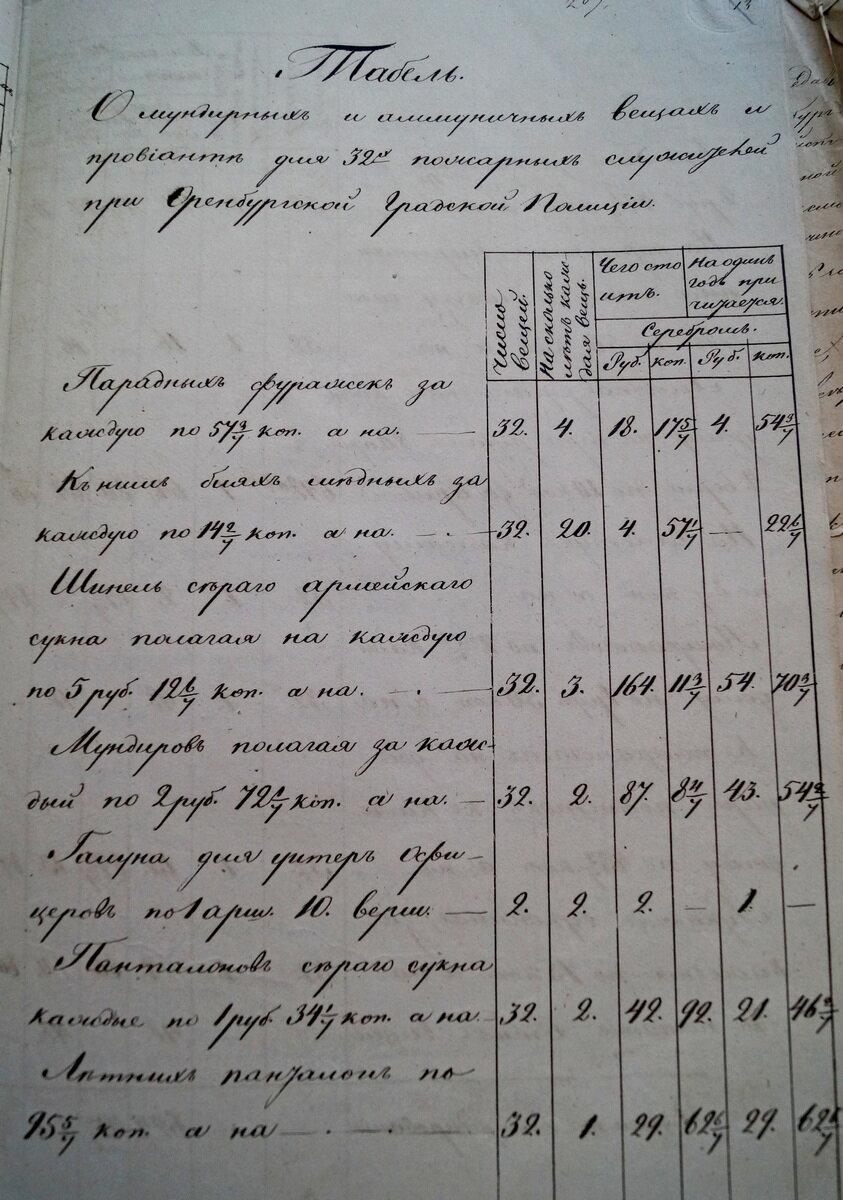 Табель.
О мундирныхъ и аммуничныхъ вещахъ и
провіантѣ для 32х пожарныхъ служителей
при Оренбургской Градской Полиціи.
Число вещей. На сколько лѣтъ каждая вещь. Чего стоитъ. На одинъ годъ причитается.
Серебромъ.
Руб. коп. Руб. коп.
Парадныхъ фуражек за
каждую по 57 3/7 коп. а на. 32. 4. 18. 17 5/7 4. 54 3/7
Къ нимъ бляхъ мѣдныхъ за
каждую по 14 2/7 коп. а на. 32. 20. 4. 57 1/7 — 22 6/7
Шинель сѣраго армейскаго
сукна полагая на каждую
по 5 руб. 12 6/7 коп. а на. 32. 3. 164. 11 3/7 54. 70 3/7
Мундировъ полагая за каж-
дый по 2 руб. 72 1/7 коп. а на. — 32. 2. 87. 8 4/7 43. 54 2/7
Галуна для унтеръ офи-
церовъ по 1 арш. 10. верш. — 2. 2. 2. — 1. —
Панталоновъ сѣраго сукна
каждые по 1 руб. 34 1/7 коп. а на 32. 2. 42. 92. 21. 46 2/7
Лѣтнихъ панталонъ по
95 5/7 коп. а на 32. 1. 29. 62 6/7 29. 62 6/7